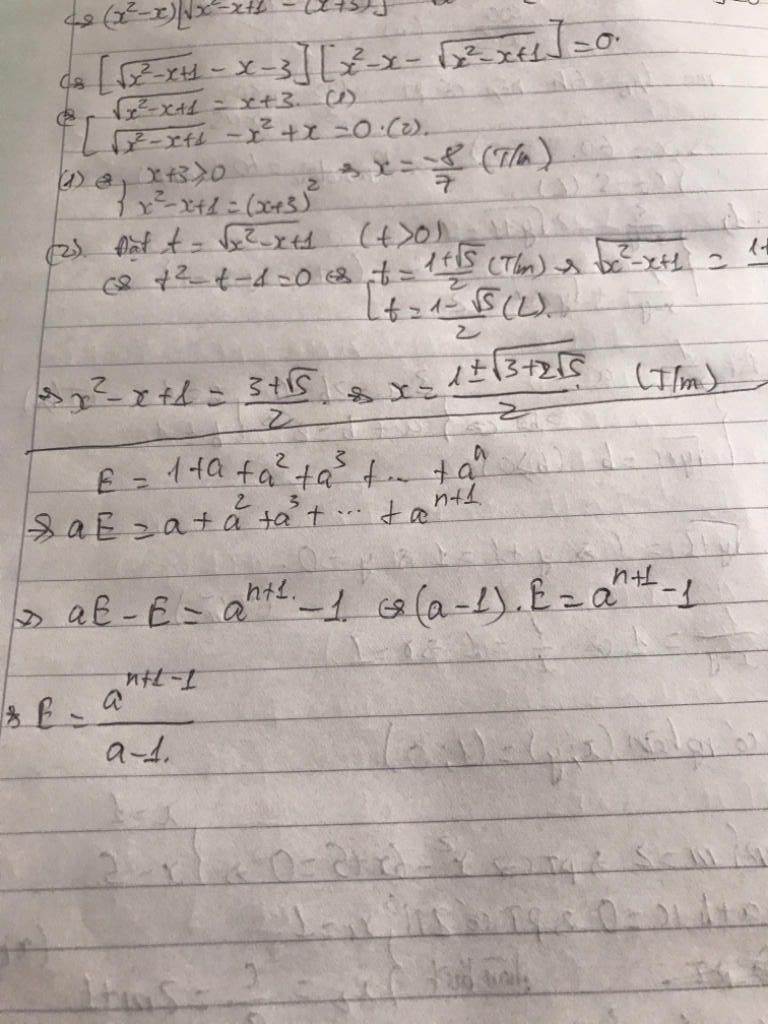 ⇔ (x²-x)[√(x²-x+1) - (x+3)]
⇔ [√(x²-x+1) - x - 3][x² - x - √(x²-x+1)] = 0.
⇔ [ √(x²-x+1) = x+3. (1)
√(x²-x+1) - x² + x = 0. (2).
(1) ⇔ { x+3 ≥ 0 ⇒ x = -8/7 (T/m)
x² - x + 1 = (x+3)²
(2). Đặt t = √(x²-x+1) (t>0)
⇔ t² - t - 1 = 0 ⇔ [ t = (1+√5)/2 (T/m) ⇒ √(x²-x+1) = 1+
t = (1-√5)/2 (L).
⇒ x² - x + 1 = (3+√5)/2. ⇒ x = (1±√(3+2√5))/2 (T/m)
E = 1 + a + a² + a³ + ... + aⁿ
⇒ aE = a + a² + a³ + ... + a^(n+1)
⇒ aE - E = a^(n+1) - 1. ⇔ (a-1).E = a^(n+1) - 1
⇒ E = a^(n+1-1)/(a-1).